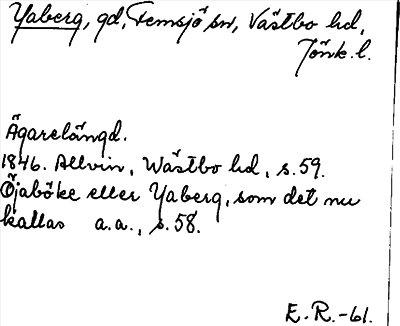 Yaberg, gd, Femsjö sn, Västbo hd,
Jönk. l.
Ägarelängd.
1846. Allvin, Wästbo hd, s. 59.
Öjaböke eller Yaberg, som det nu
kallas a.a., s. 58.
E. R. -61.